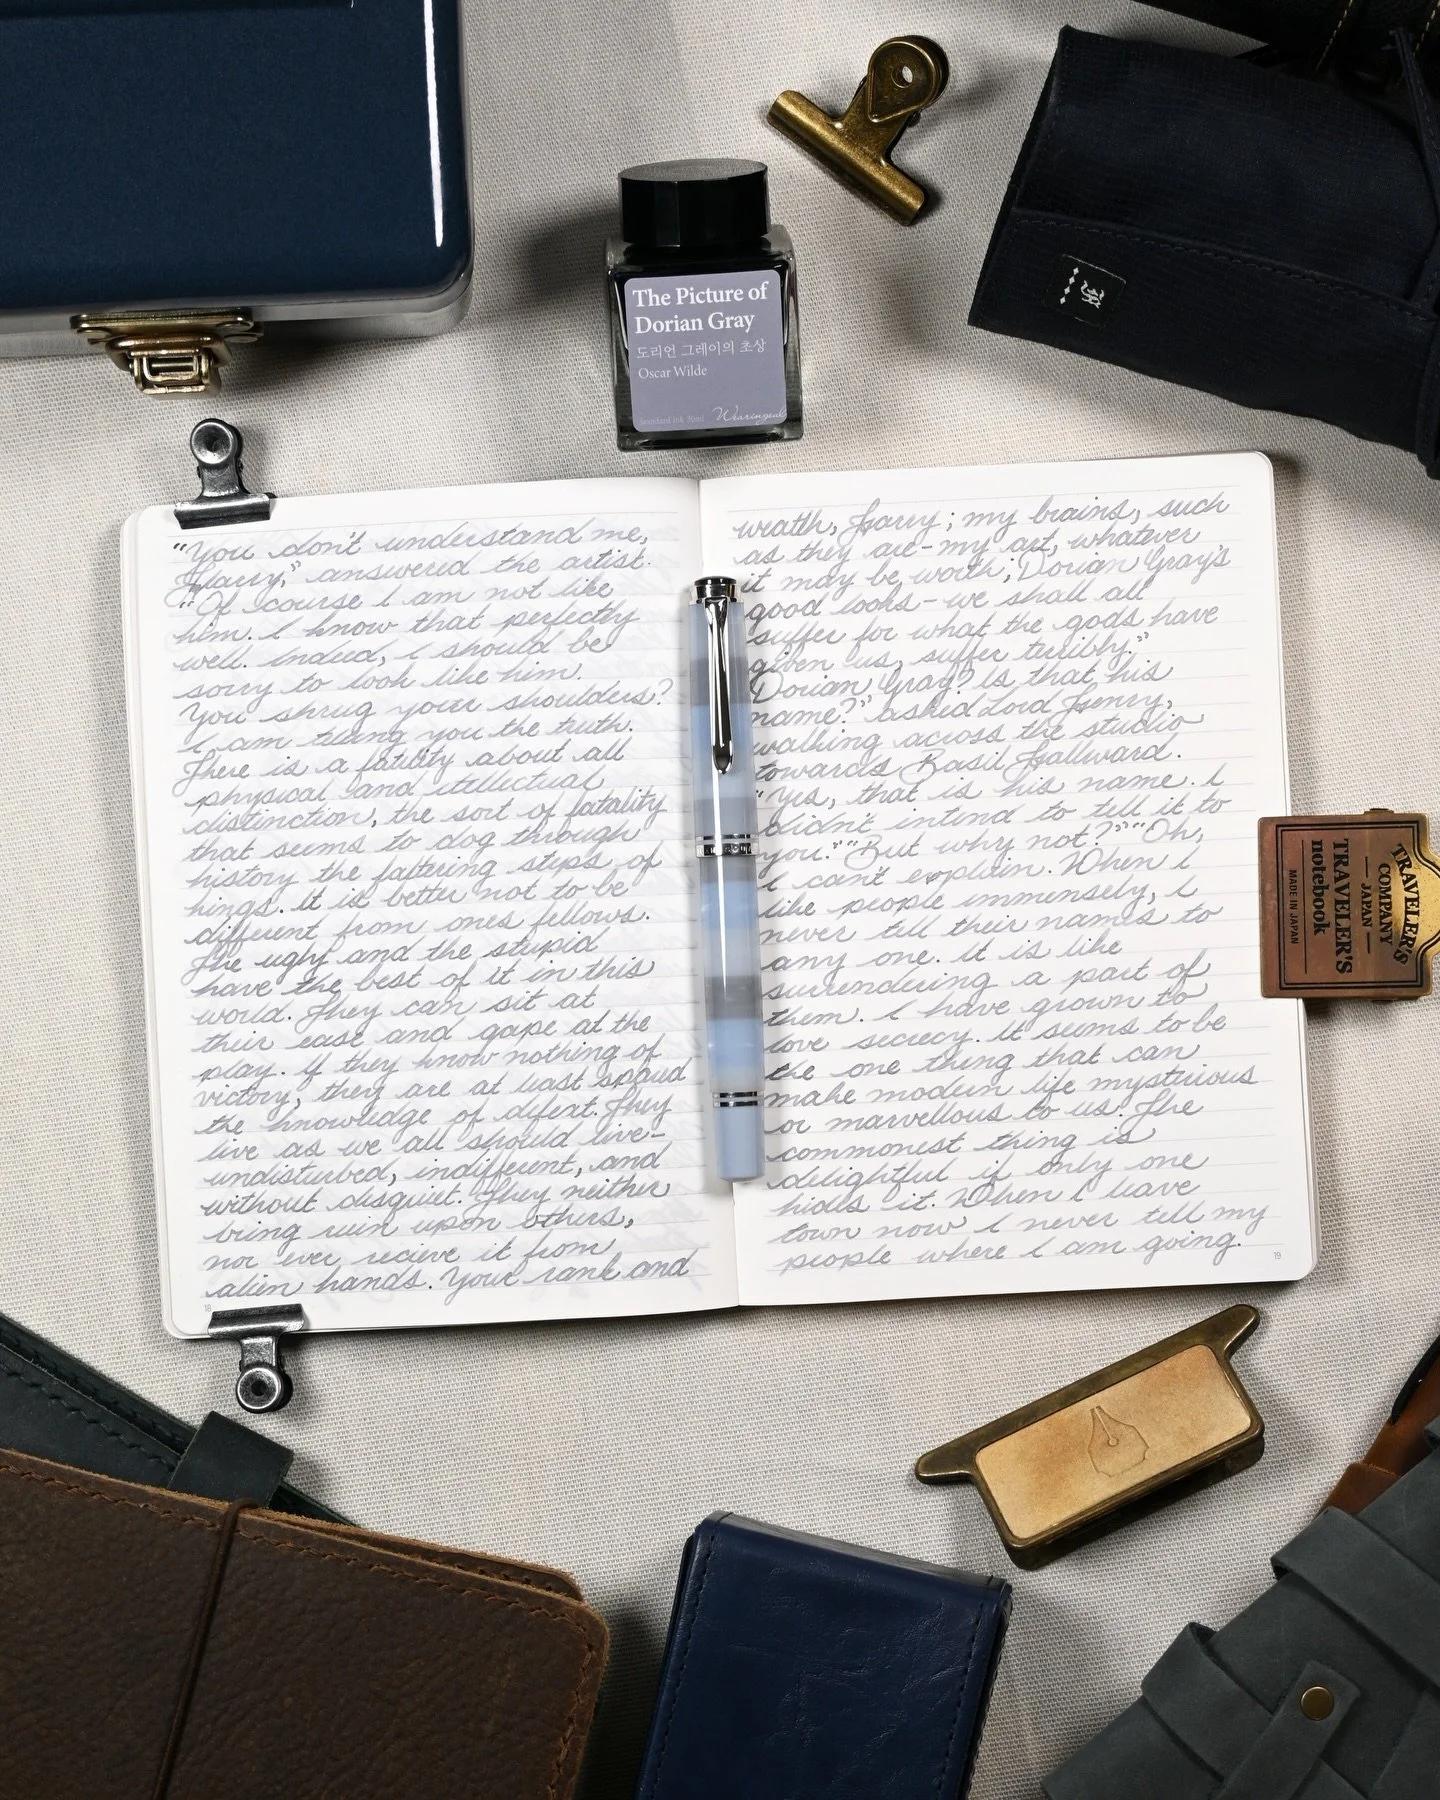 The Picture of
Dorian Gray
도리언 그레이의 초상
Oscar Wilde
Standard ink 30ml Wearingeul
"You don't understand me,
Harry," answered the artist.
"Of course I am not like
him. I know that perfectly
well. Indeed, I should be
sorry to look like him.
You shrug your shoulders?
I am telling you the truth.
There is a fatility about all
physical and itellectual
distinction, the sort of fatality
that seems to dog through
history the faltering steps of
hings. It is better not to be
different from ones fellows.
The ugly and the stupid
have the best of it in this
world. They can sit at
their ease and gape at the
play. If they know nothing of
victory, they are at least spaud
the knowledge of defeat. They
live as we all should live-
undisturbed, indifferent, and
without disquiet. They neither
bring ruin upon others,
nor ever recieve it from
alien hands. Your rank and
18
wealth, Harry; my brains, such
as they are-my art, whatever
it may be worth; Dorian Gray's
good looks-we shall all
suffer for what the gods have
given us, suffer terribly."
Dorian Gray? is that his
name?" asked Lord Henry,
walking across the studio
towards Basil Hallward.
"Yes, that is his name. I
didn't intend to tell it to
you." "But why not?" "Oh,
I can't explain. When I
like people immensely, I
never tell their names to
any one. It is like
surrendering a part of
them. I have grown to
love secrecy. It seems to be
the one thing that can
make modern life mysterious
or marvellous to us. The
commonest thing is
delightful if only one
hides it. When I leave
town now I never tell my
people where I am going.
19
TRAVELER'S
COMPANY
JAPAN
TRAVELER'S
notebook
MADE IN JAPAN